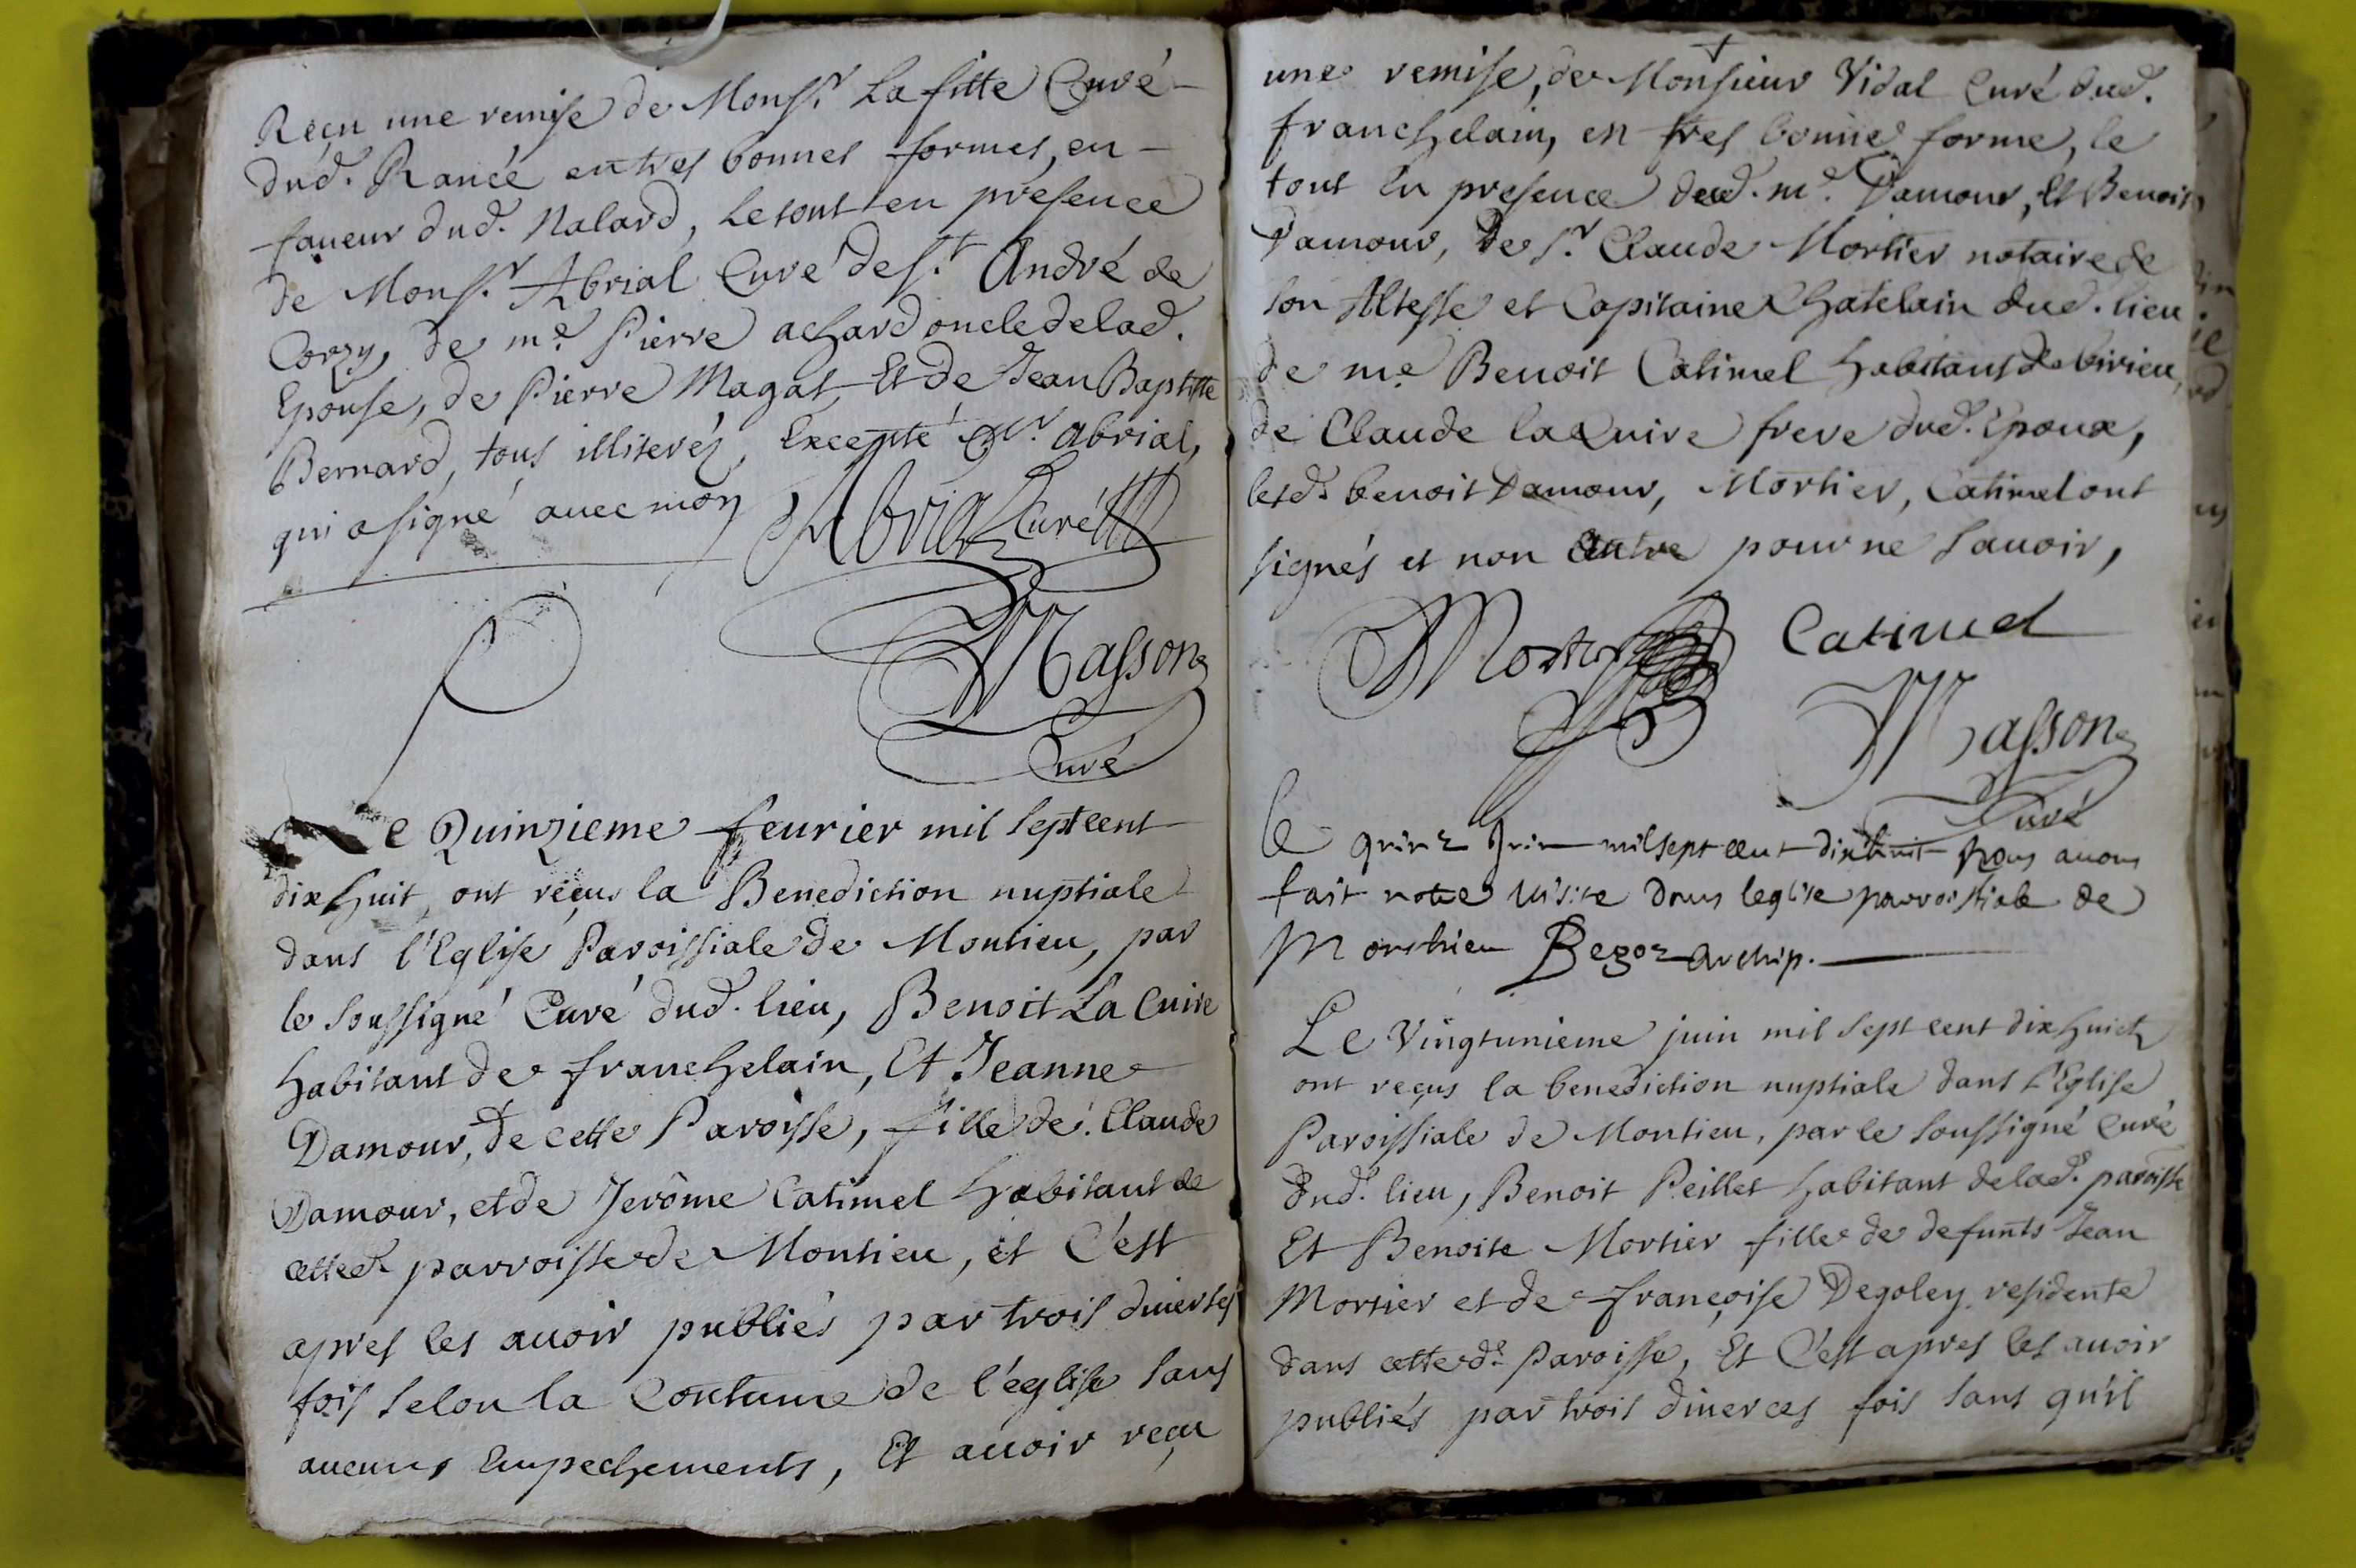 Reçu une remise de Monsr. La fitte Curé
dud. Rancé en tres bonnes formes, en
faueur dud. Nalard, le tout en presence
de Monsr. Abrial Curé de St. André de
Corzy, de me. Pierre achard oncle de lad.
Epouse, de Pierre Magat, Et de Jean Baptiste
Bernard, tous illiterés, Excepté Mr. abrial,
qui a signé auec moy Abrial Curé
Masson
Curé
Le Quinzieme feurier mil sept cent
dix huit, ont reçus la Benediction nuptiale
dans l'Eglise Paroissiale de Montieu, par
le soussigné Curé dud. lieu, Benoit La Cuire
habitant de franchelain, Et Jeanne
Damour, de cette Paroisse, fille de Claude
Damour, et de Jerôme Catimel habitant de
cette d. parroisse de Montieu, et C'est
apres les auoir publiés par trois diuerses
fois selon la Coutume de l'église sans
aucuns Empechements, Et auoir reçu
une remise, de Monsieur Vidal Curé dud.
franchelain, en tres bonne forme, le
tout en presence dud. me. Damour, Et Benoit
Damour, de Sr. Claude Mortier notaire de
son Altesse et Capitaine Chatelain dud. lieu
de me. Benoit Catimel habitant de birieu,
de Claude la Cuire frere dud. Epoux,
lesds. benoit Damour, Mortier, Catimel ont
signés et non autre pour ne sauoir,
Mortier Catimel
Masson
Curé
le quinze Juin mil sept cent dixhuit Nous auons
fait notre visite dans leglise parroissiale de
Monthieu Begoz archip.
Le Vingtunieme juin mil sept cent dix huict
ont reçus la benediction nuptiale dans l'Eglise
Paroissiale de Montieu, par le soussigné Curé
dud. lieu, Benoit Peillet habitant de lad. paroisse
Et Benoite Mortier fille de defunts Jean
Mortier et de françoise Degoley residente
dans cette de. Paroisse, Et C'est apres les auoir
publiés par trois diuerces fois sans qu'il